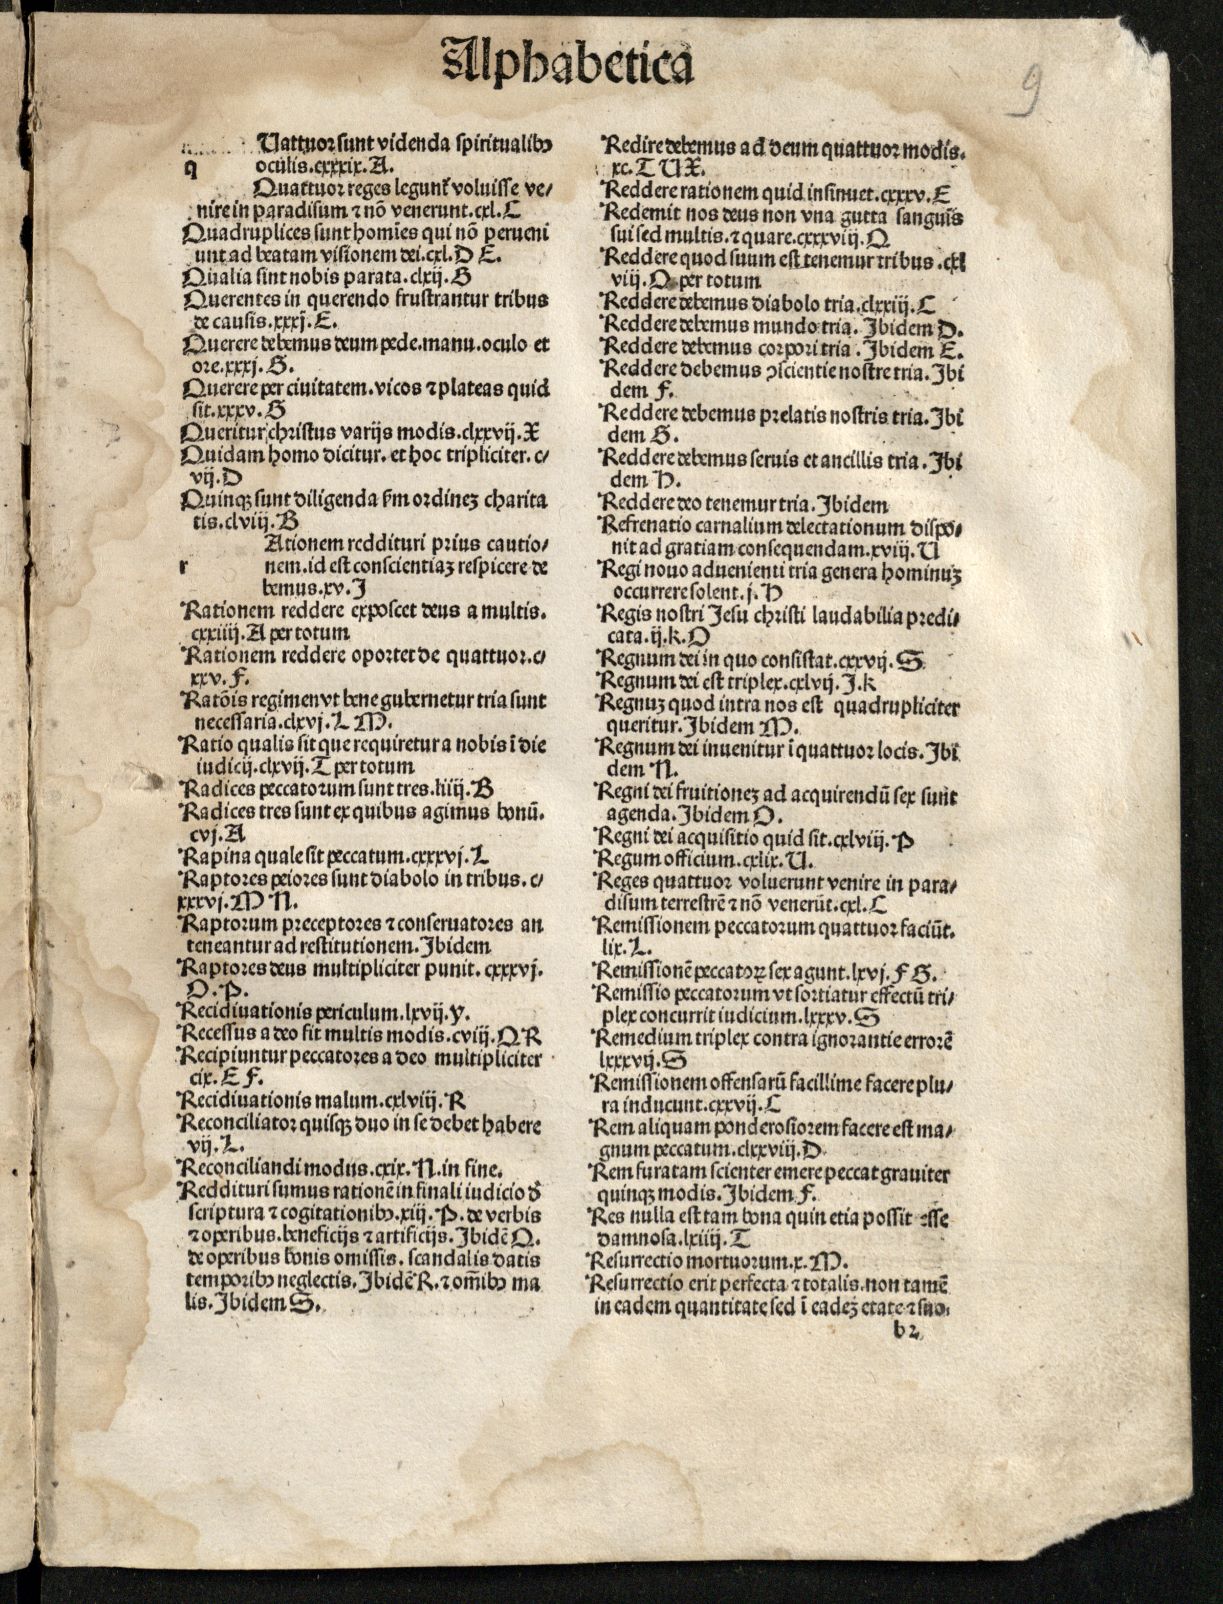 Alphabetica
9
Uattuor sunt videnda spiritualibꝰ
q oculis.cxxxix.A.
Quattuor reges legunt̃ voluisse ve⸗
nire in paradisum ⁊ nõ venerunt.cxl.C
Quadruplices sunt homĩes qui nõ perueni
unt ad beatam visionem dei.cxl.D E.
Qualia sint nobis parata.clxij.G
Querentes in querendo frustrantur tribus
de causis.xxxj.E.
Querere debemus deum pede.manu.oculo et
ore.xxxj.G.
Querere per ciuitatem.vicos ⁊ plateas quid
sit.xxxv.G
Queritur christus varijs modis.clxxvij.X
Quidam homo dicitur.et hoc tripliciter.c⸗
vij.D
Quinqꝫ sunt diligenda ẜm ordineꝫ charita
tis.clviij.B
Ationem reddituri prius cautio⸗
r nem.id est conscientiaꝫ respicere de
bemus.xv.I
Rationem reddere exposcet deus a multis.
cxxiiij.A per totum
Rationem reddere oportet de quattuor.c⸗
xxv.F.
Ratõis regimen vt bene gubernetur tria sunt
necessaria.clxvj.L M.
Ratio qualis sit que requiretur a nobis ĩ die
iudicij.clxvij.T per totum
Radices peccatorum sunt tres.liiij.B
Radices tres sunt ex quibus agimus bonũ.
cvj.A
Rapina quale sit peccatum.cxxxvj.L
Raptores peiores sunt diabolo in tribus.c⸗
xxxvj.M N.
Raptorum preceptores ⁊ conseruatores an
teneantur ad restitutionem.Ibidem
Raptores deus multipliciter punit.cxxxvj.
O.P.
Recidiuationis periculum.lxvij.y.
Recessus a deo fit multis modis.cviij.Q R
Recipiuntur peccatores a deo multipliciter
cix.E F.
Recidiuationis malum.cxlviij.R
Reconciliator quisqꝫ duo in se debet habere
vij.L.
Reconciliandi modus.cxix.N.in fine.
Reddituri sumus rationẽ in finali iudicio ð
scriptura ⁊ cogitationibꝰ.xiij.P.de verbis
⁊ operibus.beneficijs ⁊ artificijs.Ibidẽ Q.
de operibus bonis omissis.scandalis datis
temporibꝰ neglectis.Ibidẽ R.⁊ om̃ibꝰ ma
lis.Ibidem S.
Redire debemus ad deum quattuor modis.
xc.T U X.
Reddere rationem quid insinuet.cxxxv.E
Redemit nos deus non vna gutta sanguĩs
sui sed multis.⁊ quare.cxxxviij.Q
Reddere quod suum est tenemur tribus.cxl
viij.O per totum
Reddere debemus diabolo tria.clxxiij.C
Reddere debemus mundo tria.Ibidem D.
Reddere debemus corpori tria.Ibidem E.
Reddere debemus ↄscientie nostre tria.Ibi
dem F.
Reddere debemus prelatis nostris tria.Ibi
dem G.
Reddere debemus seruis et ancillis tria.Ibi
dem H.
Reddere deo tenemur tria.Ibidem
Refrenatio carnalium delectationum dispo⸗
nit ad gratiam consequendam.xviij.U
Regi nouo aduenienti tria genera hominuꝫ
occurrere solent.j.H
Regis nostri Jesu christi laudabilia predi⸗
cata.ij.k.O
Regnum dei in quo consistat.cxxvij.S
Regnum dei est triplex.cxlvij.I.k
Regnuꝫ quod intra nos est quadrupliciter
queritur.Ibidem M.
Regnum dei inuenitur ĩ quattuor locis.Ibi
dem N.
Regni dei fruitioneꝫ ad acquirendũ sex sunt
agenda.Ibidem O.
Regni dei acquisitio quid sit.cxlviij.P
Regum officium.cxlix.U.
Reges quattuor voluerunt venire in para⸗
disum terrestrẽ ⁊ nõ venerũt.cxl.C
Remissionem peccatorum quattuor faciũt.
lix.L.
Remissionẽ peccatoꝝ sex agunt.lxvj.F G.
Remissio peccatorum vt sortiatur effectũ tri⸗
plex concurrit iudicium.lxxxv.S
Remedium triplex contra ignorantie errorẽ
lxxxvij.S
Remissionem offensarũ facillime facere plu⸗
ra inducunt.cxxvij.C
Rem aliquam ponderosiorem facere est ma⸗
gnum peccatum.clxxviij.D
Rem furatam scienter emere peccat grauiter
quinqꝫ modis.Ibidem F.
Res nulla est tam bona quin etia possit esse
damnosa.lxiiij.T
Resurrectio mortuorum.x.M.
Resurrectio erit perfecta ⁊ totalis.non tamẽ
in eadem quantitate sed ĩ eadeꝫ etate ⁊ suo.
b 2